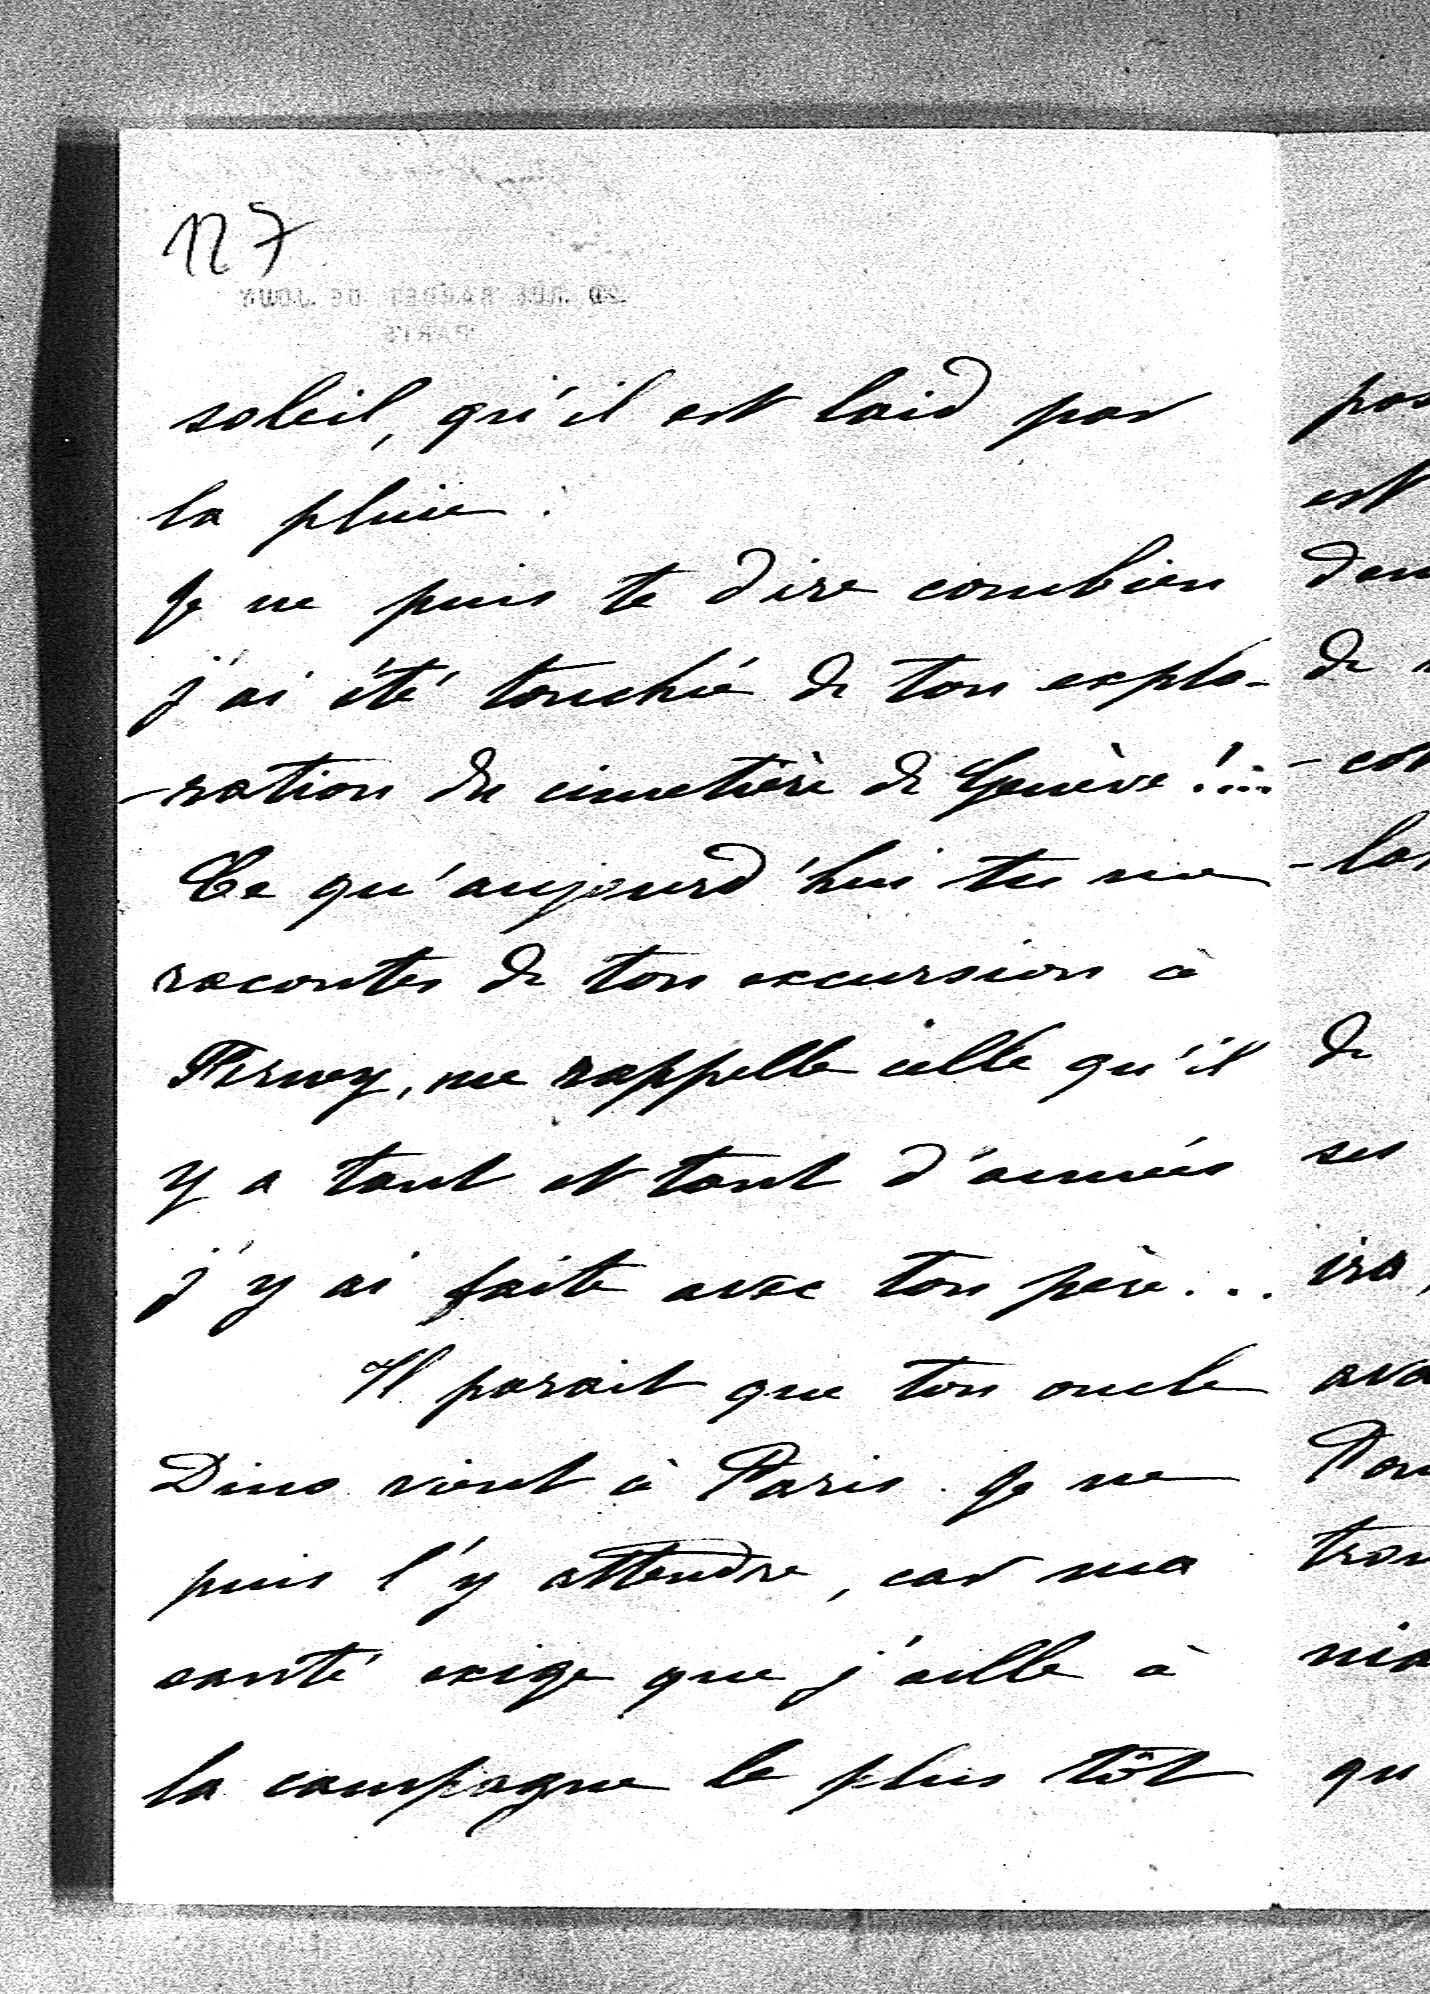 127
20 RUE BARBET DE JOUY
PARIS
soleil, qu'il est laid par
la pluie.
Je ne puis te dire combien
j'ai été touché de ton explo-
-ration du cimetière de Genève !...
Ce qu'aujourd'hui tu me
racontes de ton excursion à
Ferney, me rappelle celle qu'il
y a tant et tant d'années
j'y ai faite avec ton père...
Il parait que ton oncle
Dino vient à Paris. Je ne
puis l'y attendre, car ma
santé exige que j'aille à
la campagne le plus tôt
pos
est
de
-co
de
ses
ira,
ava
qu